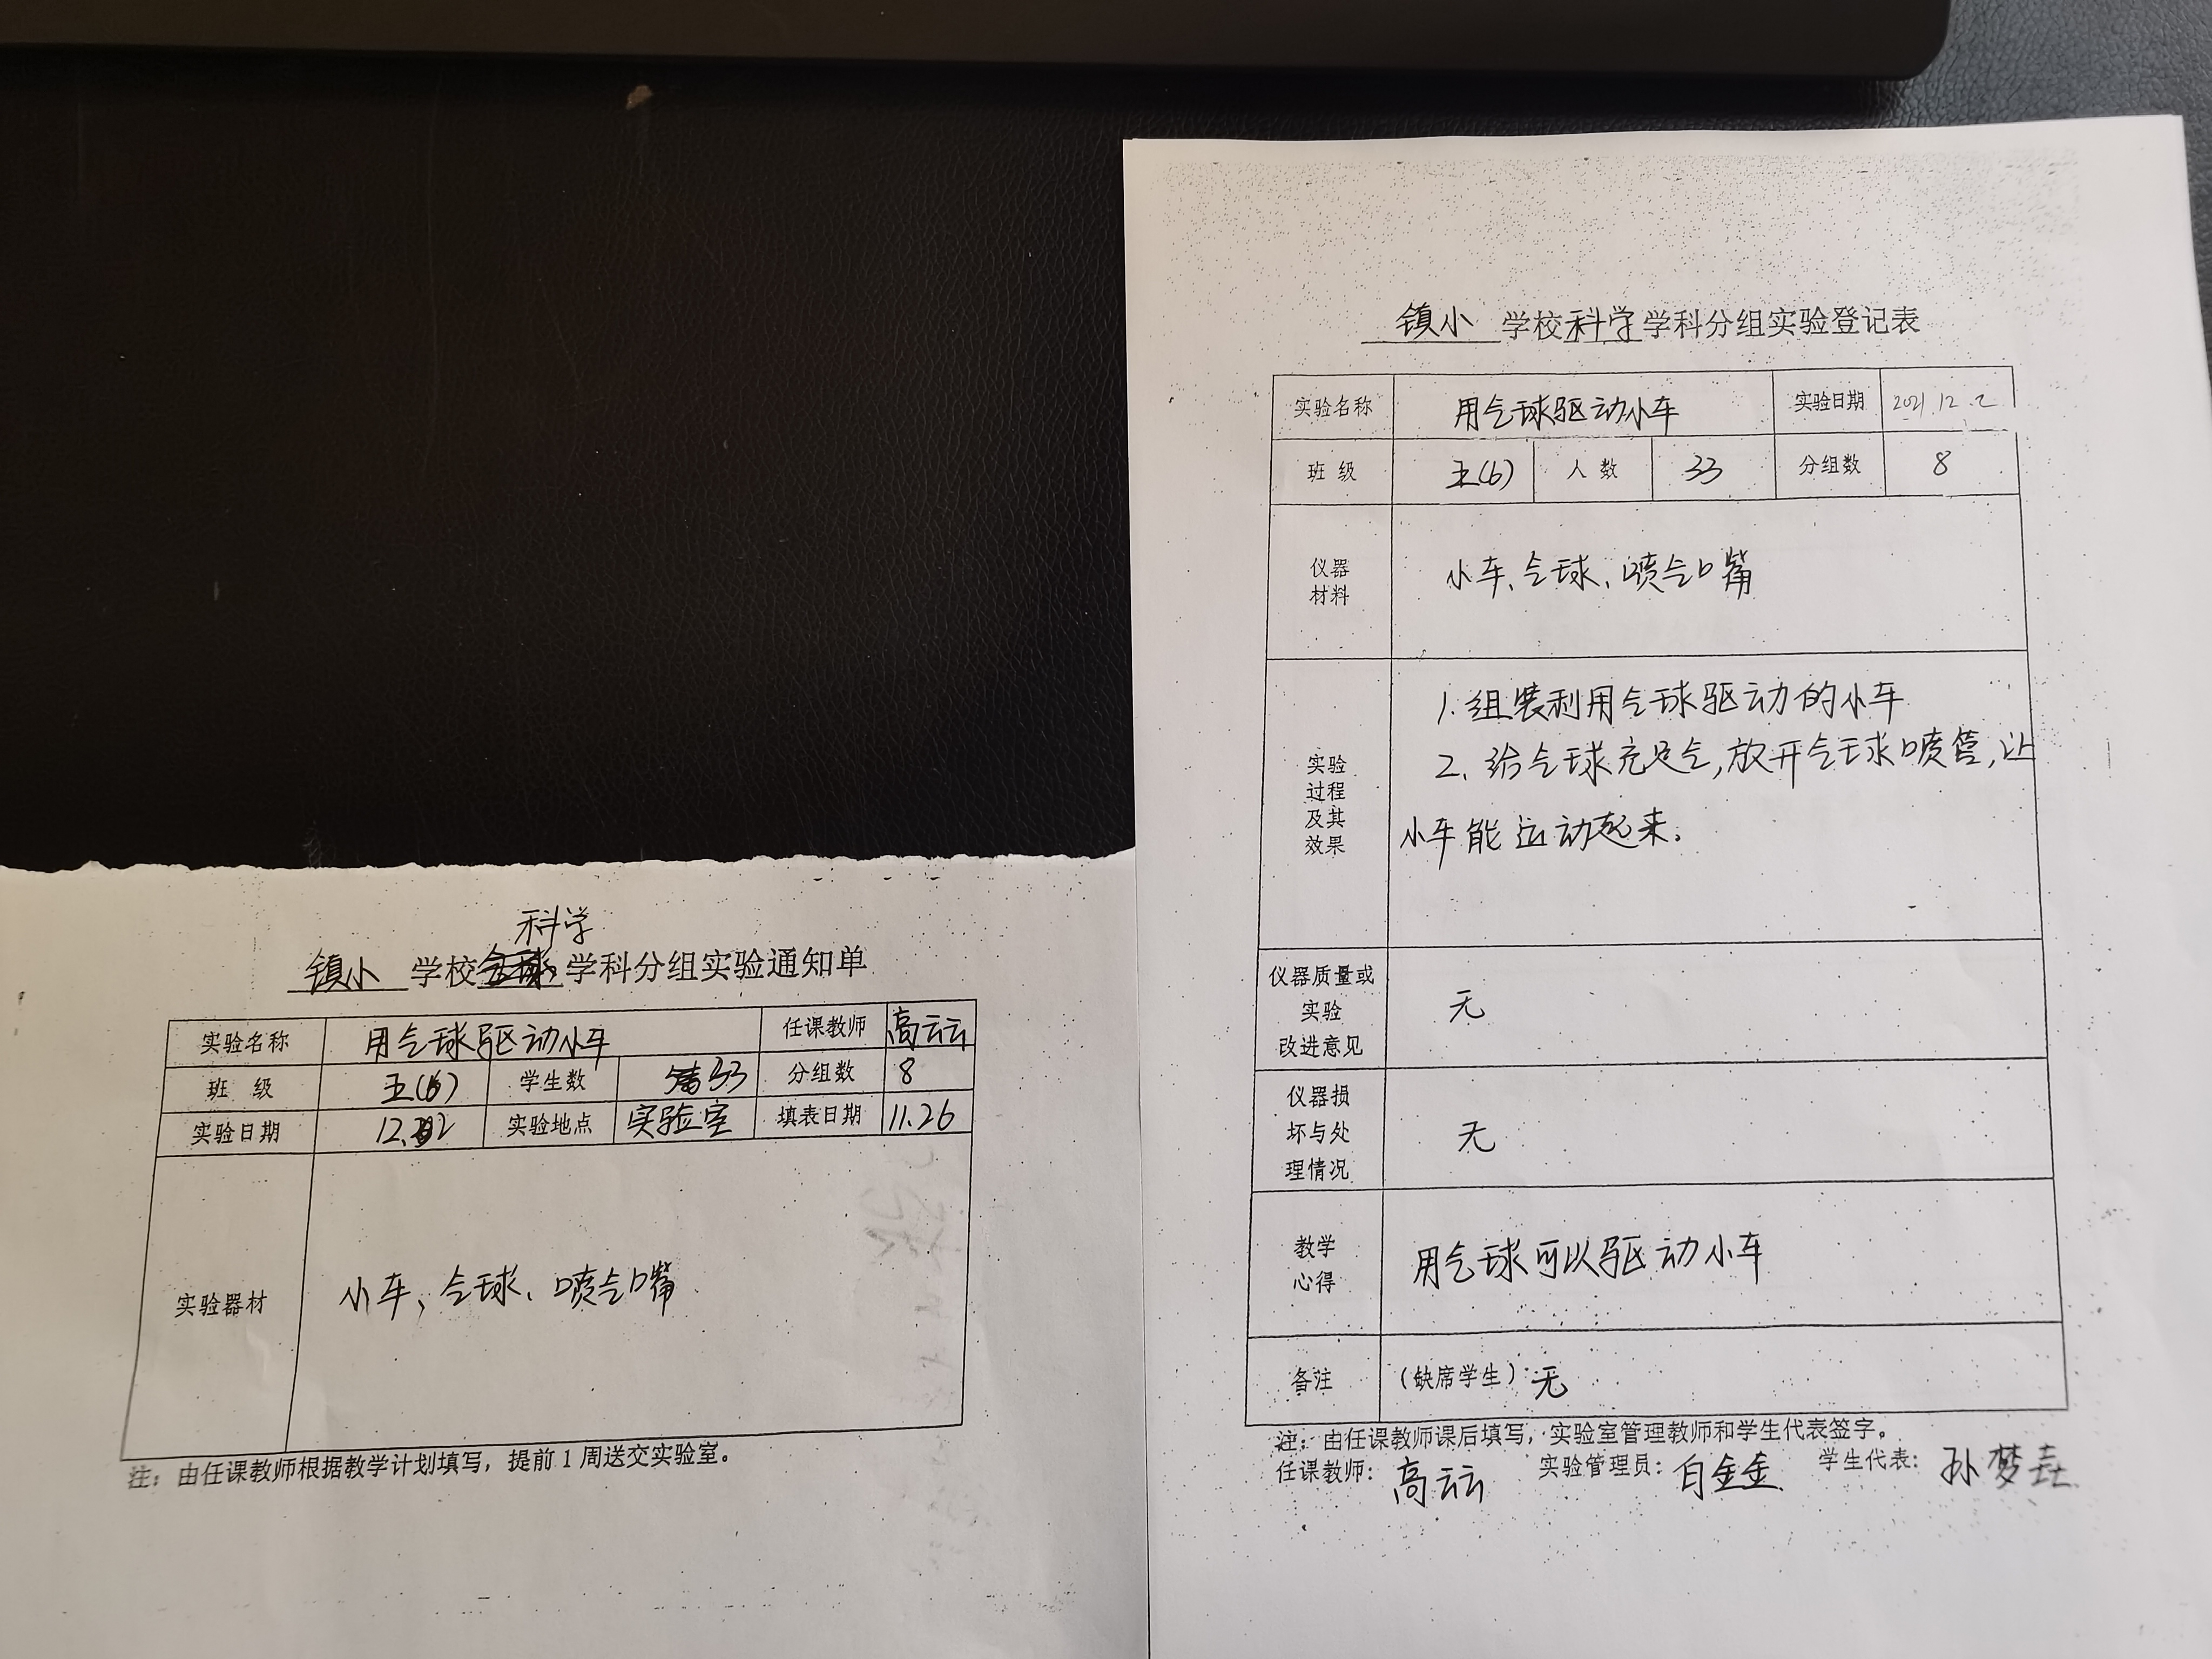 科学
镇小 学校 学科分组实验通知单
实验名称 用气球驱动小车 任课教师 高云云
班 级 五(6) 学生数 33 分组数 8
实验日期 12.2 实验地点 实验室 填表日期 11.26
实验器材 小车、气球、喷气嘴
注：由任课教师根据教学计划填写，提前1周送交实验室。
镇小 学校科学学科分组实验登记表
实验名称 用气球驱动小车 实验日期 2021.12.2
班 级 五(6) 人 数 33 分组数 8
仪器
材料
小车、气球、喷气嘴
实验
过程
及其
效果
1.组装利用气球驱动的小车
2、给气球充足气,放开气球喷管,让
小车能运动起来。
仪器质量或
实验
改进意见
无
仪器损
坏与处
理情况
无
教学
心得
用气球可以驱动小车
备注 （缺席学生）无
注：由任课教师课后填写，实验室管理教师和学生代表签字。
任课教师：高云云 实验管理员：白金金 学生代表：孙梦垚